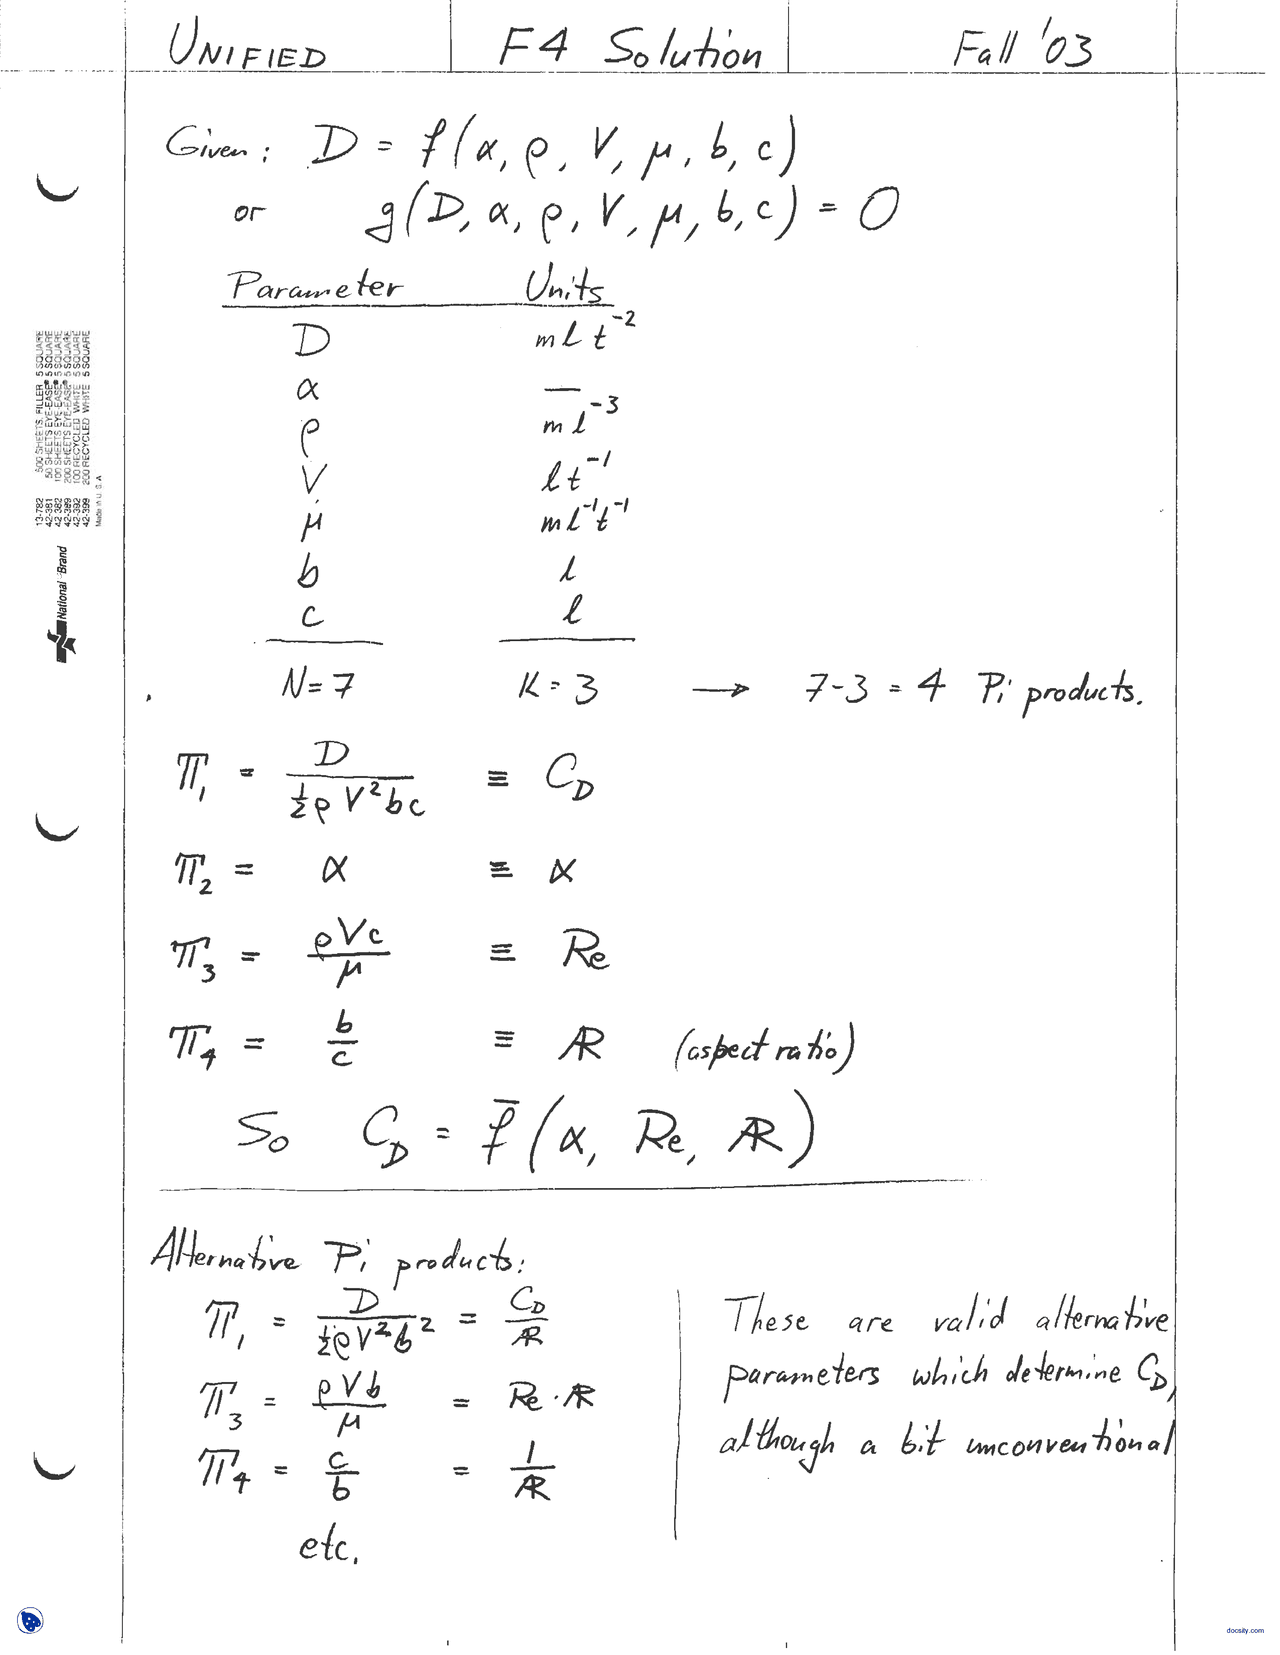 UNIFIED F4 Solution Fall '03
Given: D = f(α, ρ, V, μ, b, c)
or g(D, α, ρ, V, μ, b, c) = 0
Parameter Units
D m l t⁻²
α —
ρ m l⁻³
V l t⁻¹
μ m l⁻¹ t⁻¹
b l
c l
N = 7 K = 3 → 7-3 = 4 Pi products.
Π₁ = D / (½ρV²bc) ≡ C_D
Π₂ = α ≡ α
Π₃ = ρVc / μ ≡ Re
Π₄ = b / c ≡ AR (aspect ratio)
So C_D = f̄(α, Re, AR)
Alternative Pi products:
Π₁ = D / (½ρV²b²) = C_D / AR
Π₃ = ρVb / μ = Re · AR
Π₄ = c / b = 1 / AR
etc.
These are valid alternative
parameters which determine C_D,
although a bit unconventional
13-782 500 SHEETS, FILLER 5 SQUARE
42-381 50 SHEETS EYE-EASE® 5 SQUARE
42-382 100 SHEETS EYE-EASE® 5 SQUARE
42-389 200 SHEETS EYE-EASE® 5 SQUARE
42-392 100 RECYCLED WHITE 5 SQUARE
42-399 200 RECYCLED WHITE 5 SQUARE
Made in U.S.A
National®Brand
docsity.com